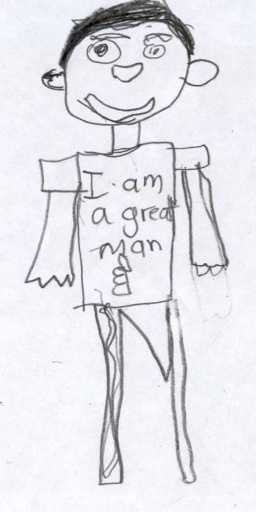 I am
a great
man